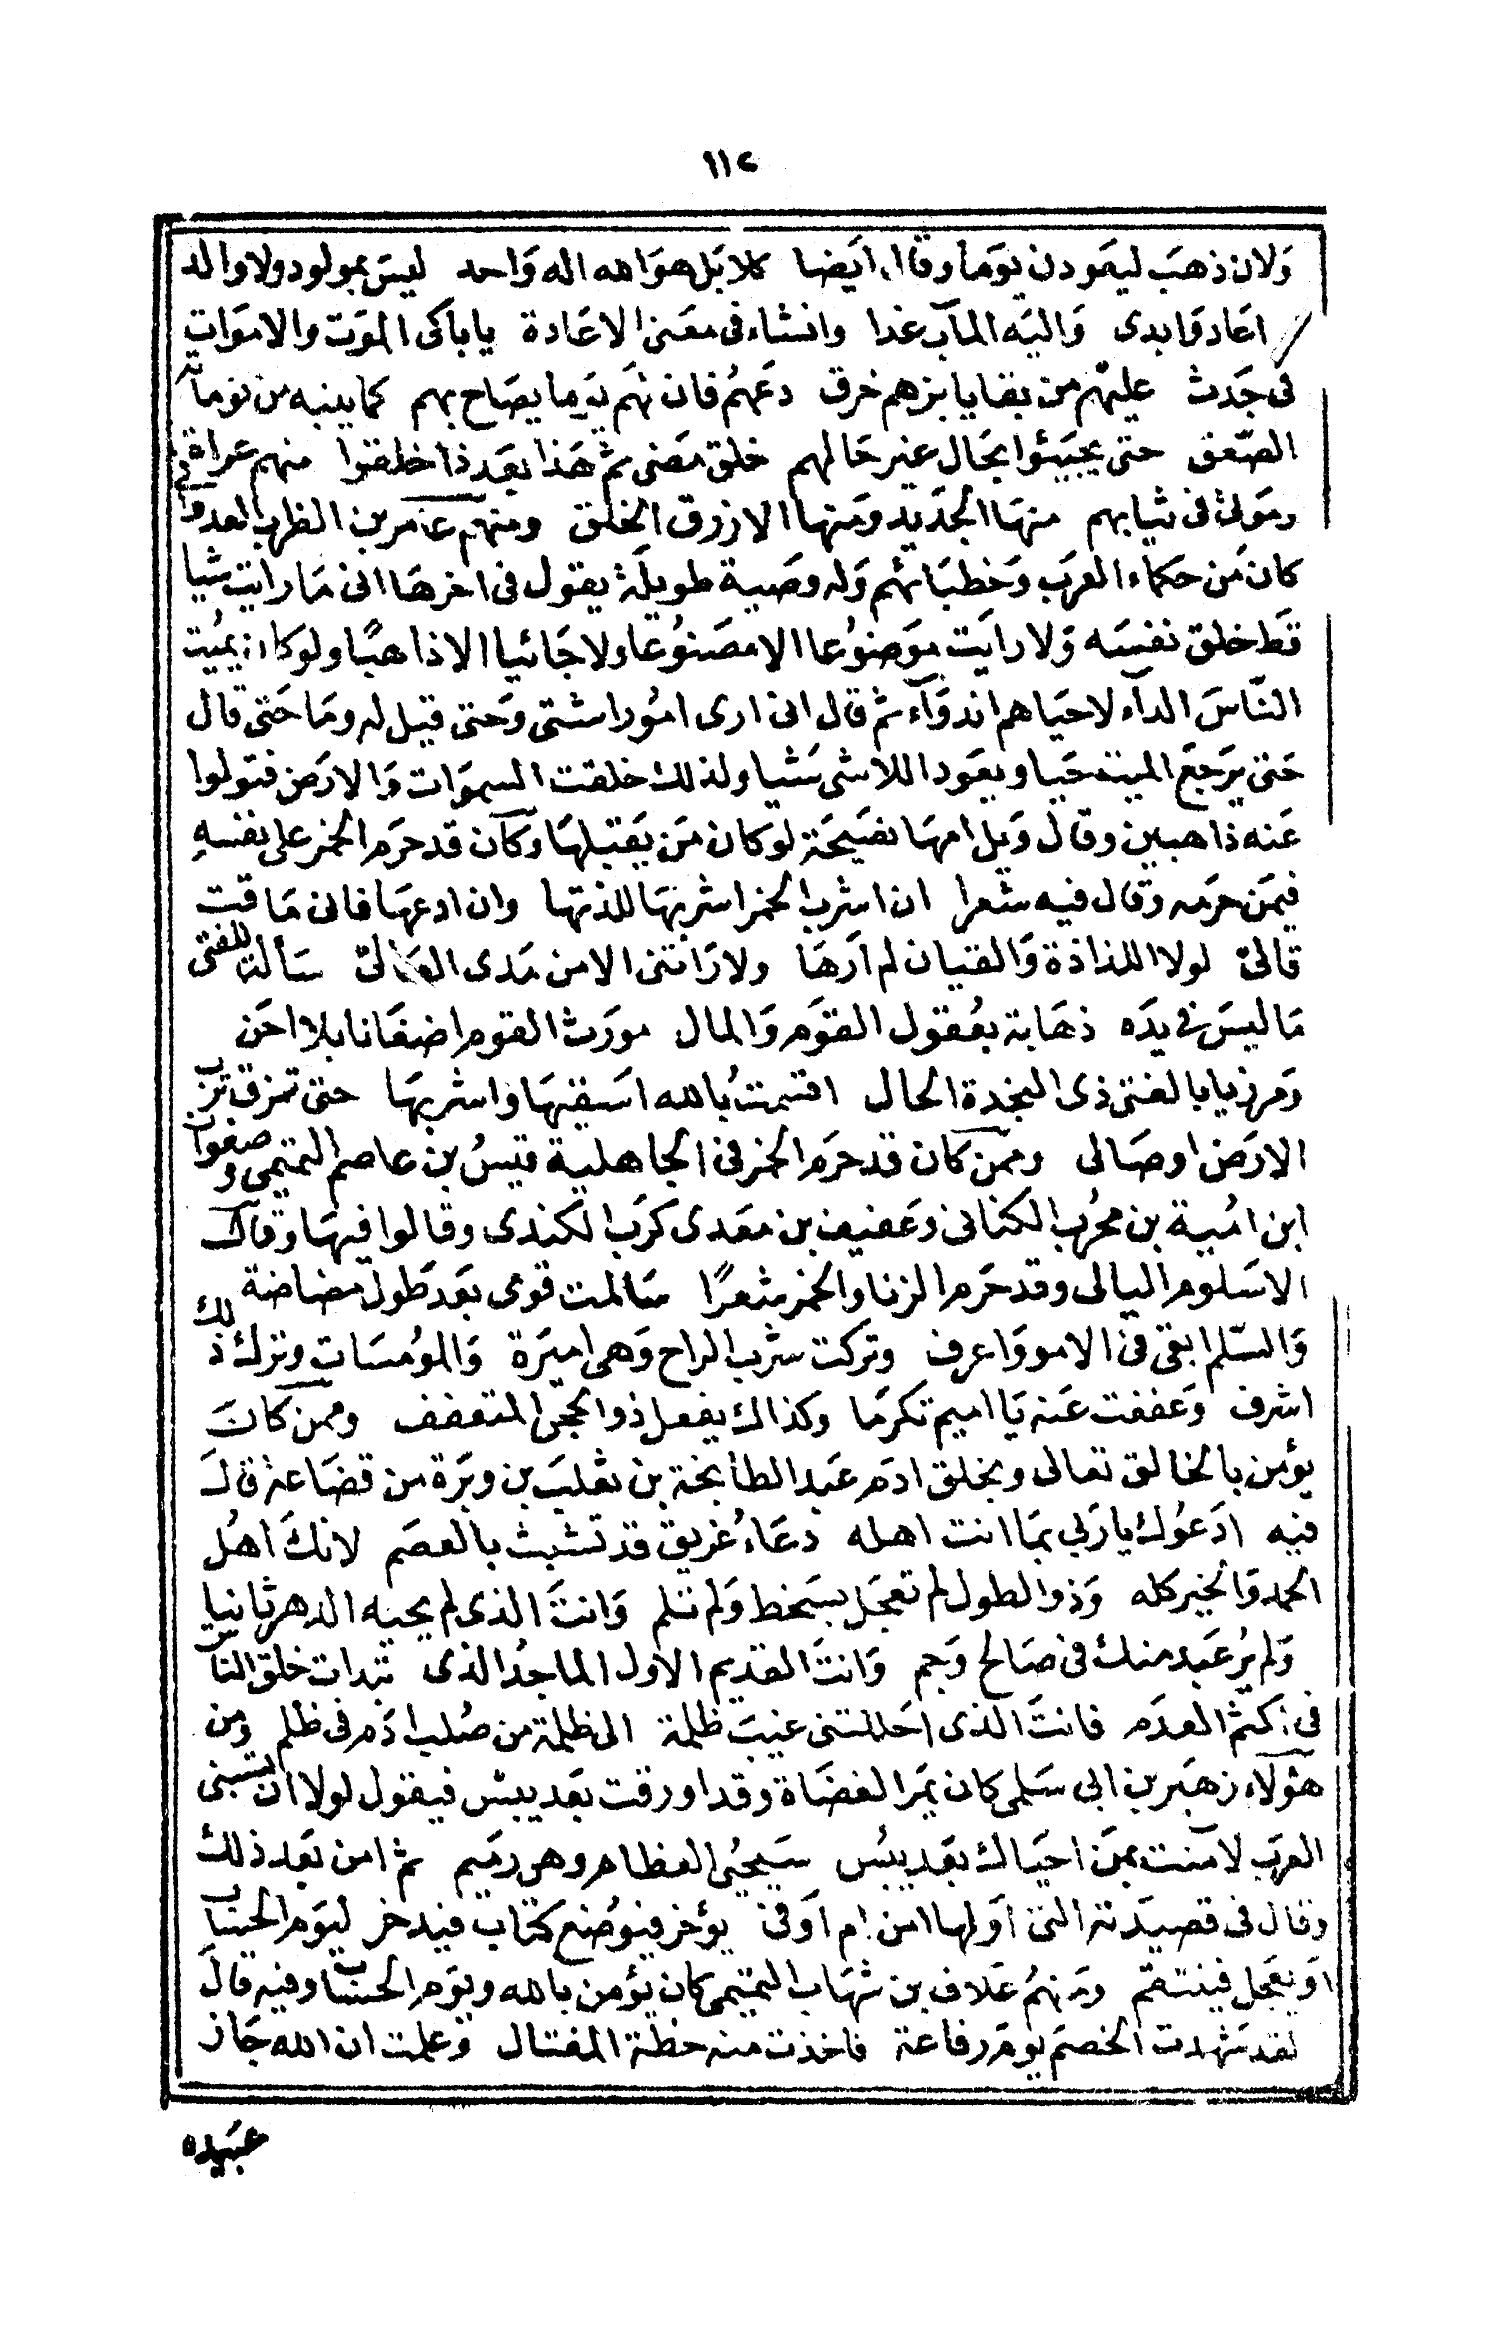 ١١٢
ولان ذهب ليعودن يوما وقال ايضا كلا بل هو الله اله واحد ليس بمولود ولا والد
اعاد وابدى واليه المآب غدا وانشاء فى معنى الاعادة يا باكى الموت والاموات
فى جدث عليهم من بقايا بزهم خرق دعهم فان لهم يوما يصاح بهم كما ينبه من نوماته
الصعق حتى يجيئوا بحال غير حالهم خلق مضى ثم هذا بعد ذا خلقوا منهم عراة
وموتى فى ثيابهم منها الجديد ومنها الازرق الخلق ومنهم عامر بن الظرب العدوانى
كان من حكماء العرب وخطبائهم وله وصية طويلة يقول فى اخرها انى ما رايت شيا
قط خلق نفسه ولا رايت موضوعا الا مصنوعا ولا جائيا الا ذاهبا ولو كان يميت
الناس الداء لاحياهم الدواء ثم قال انى ارى امورا شتى وحتى قيل له وما حتى قال
حتى يرجع الميت حيا ويعود اللاشى شيا ولذلك خلقت السموات والارض فتولوا
عنه ذاهبين وقال ويل امها نصيحة لو كان من يقبلها وكان قد حرم الخمر على نفسه
فيمن حرمه وقال فيه شعرا ان اشرب الخمر اشربها للذتها وان ادعها فانى ماقت
قالى لولا اللذاذة والقينان لم ارها ولا راتنى الا من مدى العالى سألة للفتى
ما ليس فى يده ذهابة بعقول القوم والمال مورث القوم اضغانا بلا احن
ومزريا بالفتى ذى النجدة الحال اقسمت بالله اسقيها واشربها حتى تمزق ترب
الارض اوصالى وممن كان قد حرم الخمر فى الجاهلية قيس بن عاصم التميمى وصفوان
ابن امية بن محرب الكنانى وعفيف بن معدى كرب الكندى وقالوا فيها وقال
الاسلوم اليالى وقد حرم الزنا والخمر شعرا سالمت قومى بعد طول مضاضة
والسلم ابقى فى الامور واعرف وتركت شرب الراح وهى اميرة والمومسات وترك ذلك
اشرف وعففت عنه يا اميم تكرما وكذاك يفعل ذو الحجى المتعفف وممن كان
يؤمن بالخالق تعالى وبخلق ادم عبد الطابخة بن ثعلب بن وبرة من قضاعة قال
فيه ادعوك يا ربى بما انت اهله دعاء غريق قد تشبث بالعصم لانك اهل
الحمد والخير كله وذو الطول لم تعجل بسخط ولم تلم وانت الذى لم يحيه الدهر ثانيا
ولم ير عبد منك فى صالح وجم وانت القديم الاول الماجد الذى تبدات خلق الناس
فى اكثم العدم فانت الذى احللتنى غيب ظلمة الى ظلمة من صلب ادم فى ظلم ومن
هؤلاء زهير بن ابى سلمى كان يمر الغضاة وقد اورقت بعد يبس فيقول لولا ان تسبنى
العرب لآمنت بمن احياك بعد يبس سيحيى العظام وهى رميم ثم امن بعد ذلك
وقال فى قصيدته التى اولها امن ام اوفى يؤخر فيوضع كتاب فيدخر ليوم الحساب
او يعجل فينتقم ومنهم علاف بن شهاب التميمى كان يؤمن بالله ويوم الحساب وفيه قال
لقد شهدت الخصم يوم رفاعة فاخذت منه خطة المفتال وعلمت ان الله جاز
عبيده